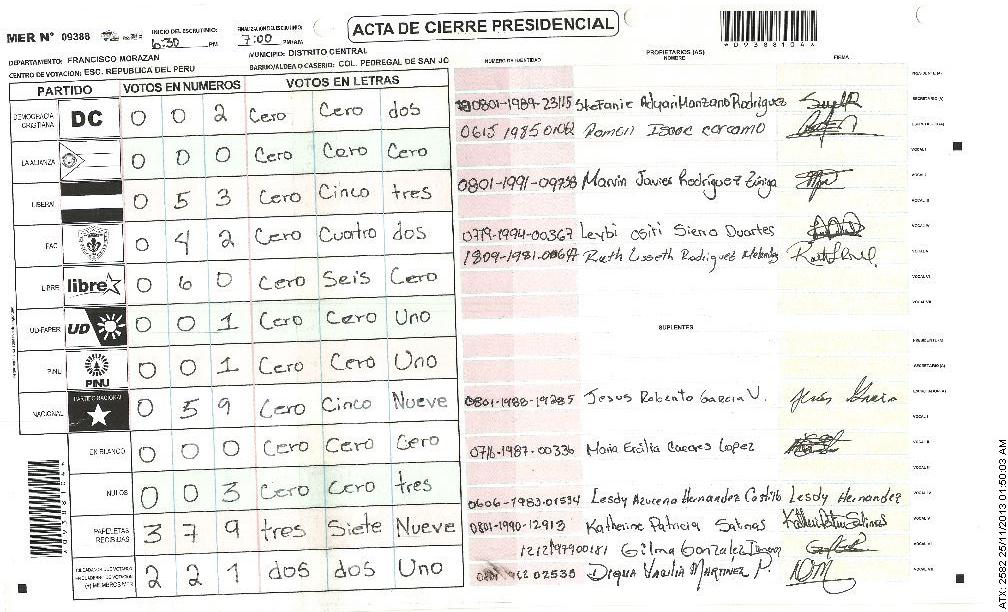 ACTA DE CIERRE PRESIDENCIAL
MER N° 09388
INICIO DEL ESCRUTINIO: 6:30 PM
FINALIZACION DEL ESCRUTINIO: 7:00 PM/AM
*D938810A*
DEPARTAMENTO: FRANCISCO MORAZAN
MUNICIPIO: DISTRITO CENTRAL
CENTRO DE VOTACION: ESC. REPUBLICA DEL PERU
BARRIO/ALDEA O CASERIO: COL. PEDREGAL DE SAN JO
PARTIDO VOTOS EN NUMEROS VOTOS EN LETRAS
DEMOCRACIA CRISTIANA DC 0 0 2 Cero Cero dos
LA ALIANZA 0 0 0 Cero Cero Cero
LIBERAL 0 5 3 Cero Cinco tres
PAC 0 4 2 Cero Cuatro dos
LIBRE libre 0 6 0 Cero Seis Cero
UD-FAPER UD 0 0 1 Cero Cero Uno
PINU PINU 0 0 1 Cero Cero Uno
NACIONAL PARTIDO NACIONAL 0 5 9 Cero Cinco Nueve
EN BLANCO 0 0 0 Cero Cero Cero
NULOS 0 0 3 Cero Cero tres
PAPELETAS RECIBIDAS 3 7 9 tres Siete Nueve
2 2 1 dos dos Uno
NUMERO DE IDENTIDAD
PROPIETARIOS (AS)
NOMBRE
FIRMA
PRESIDENTE (A)
0801-1989-23115 Stefanie Adyari Manzano Rodriguez
SECRETARIO (A)
Ramon Isaac carcamo
ESCRUTADOR (A)
VOCAL I
0801-1991-09758 Marvin Javier Rodriguez Zúniga
VOCAL II
VOCAL III
0719-1994-00367 Leybi ositi Siero Duartes
VOCAL IV
Ruth Lisseth Rodriguez
VOCAL V
VOCAL VI
VOCAL VII
SUPLENTES
PRESIDENTE (A)
SECRETARIO (A)
0801-1988-19285 Jesus Roberto Garcia V.
ESCRUTADOR (A)
VOCAL I
0716-1987-00336 Maria Ercilia Caceres Lopez
VOCAL II
VOCAL III
0606-1983-01534 Lesdy Azucena Hernandez Castillo Lesdy Hernandez
VOCAL IV
0801-1990-12913 Katherine Patricia Salinas
VOCAL V
Gilma Gonzalez
VOCAL VI
MARTINEZ P.
VOCAL VII
*D938810A*
ATX: 2582 25/11/2013 01:50:03 AM